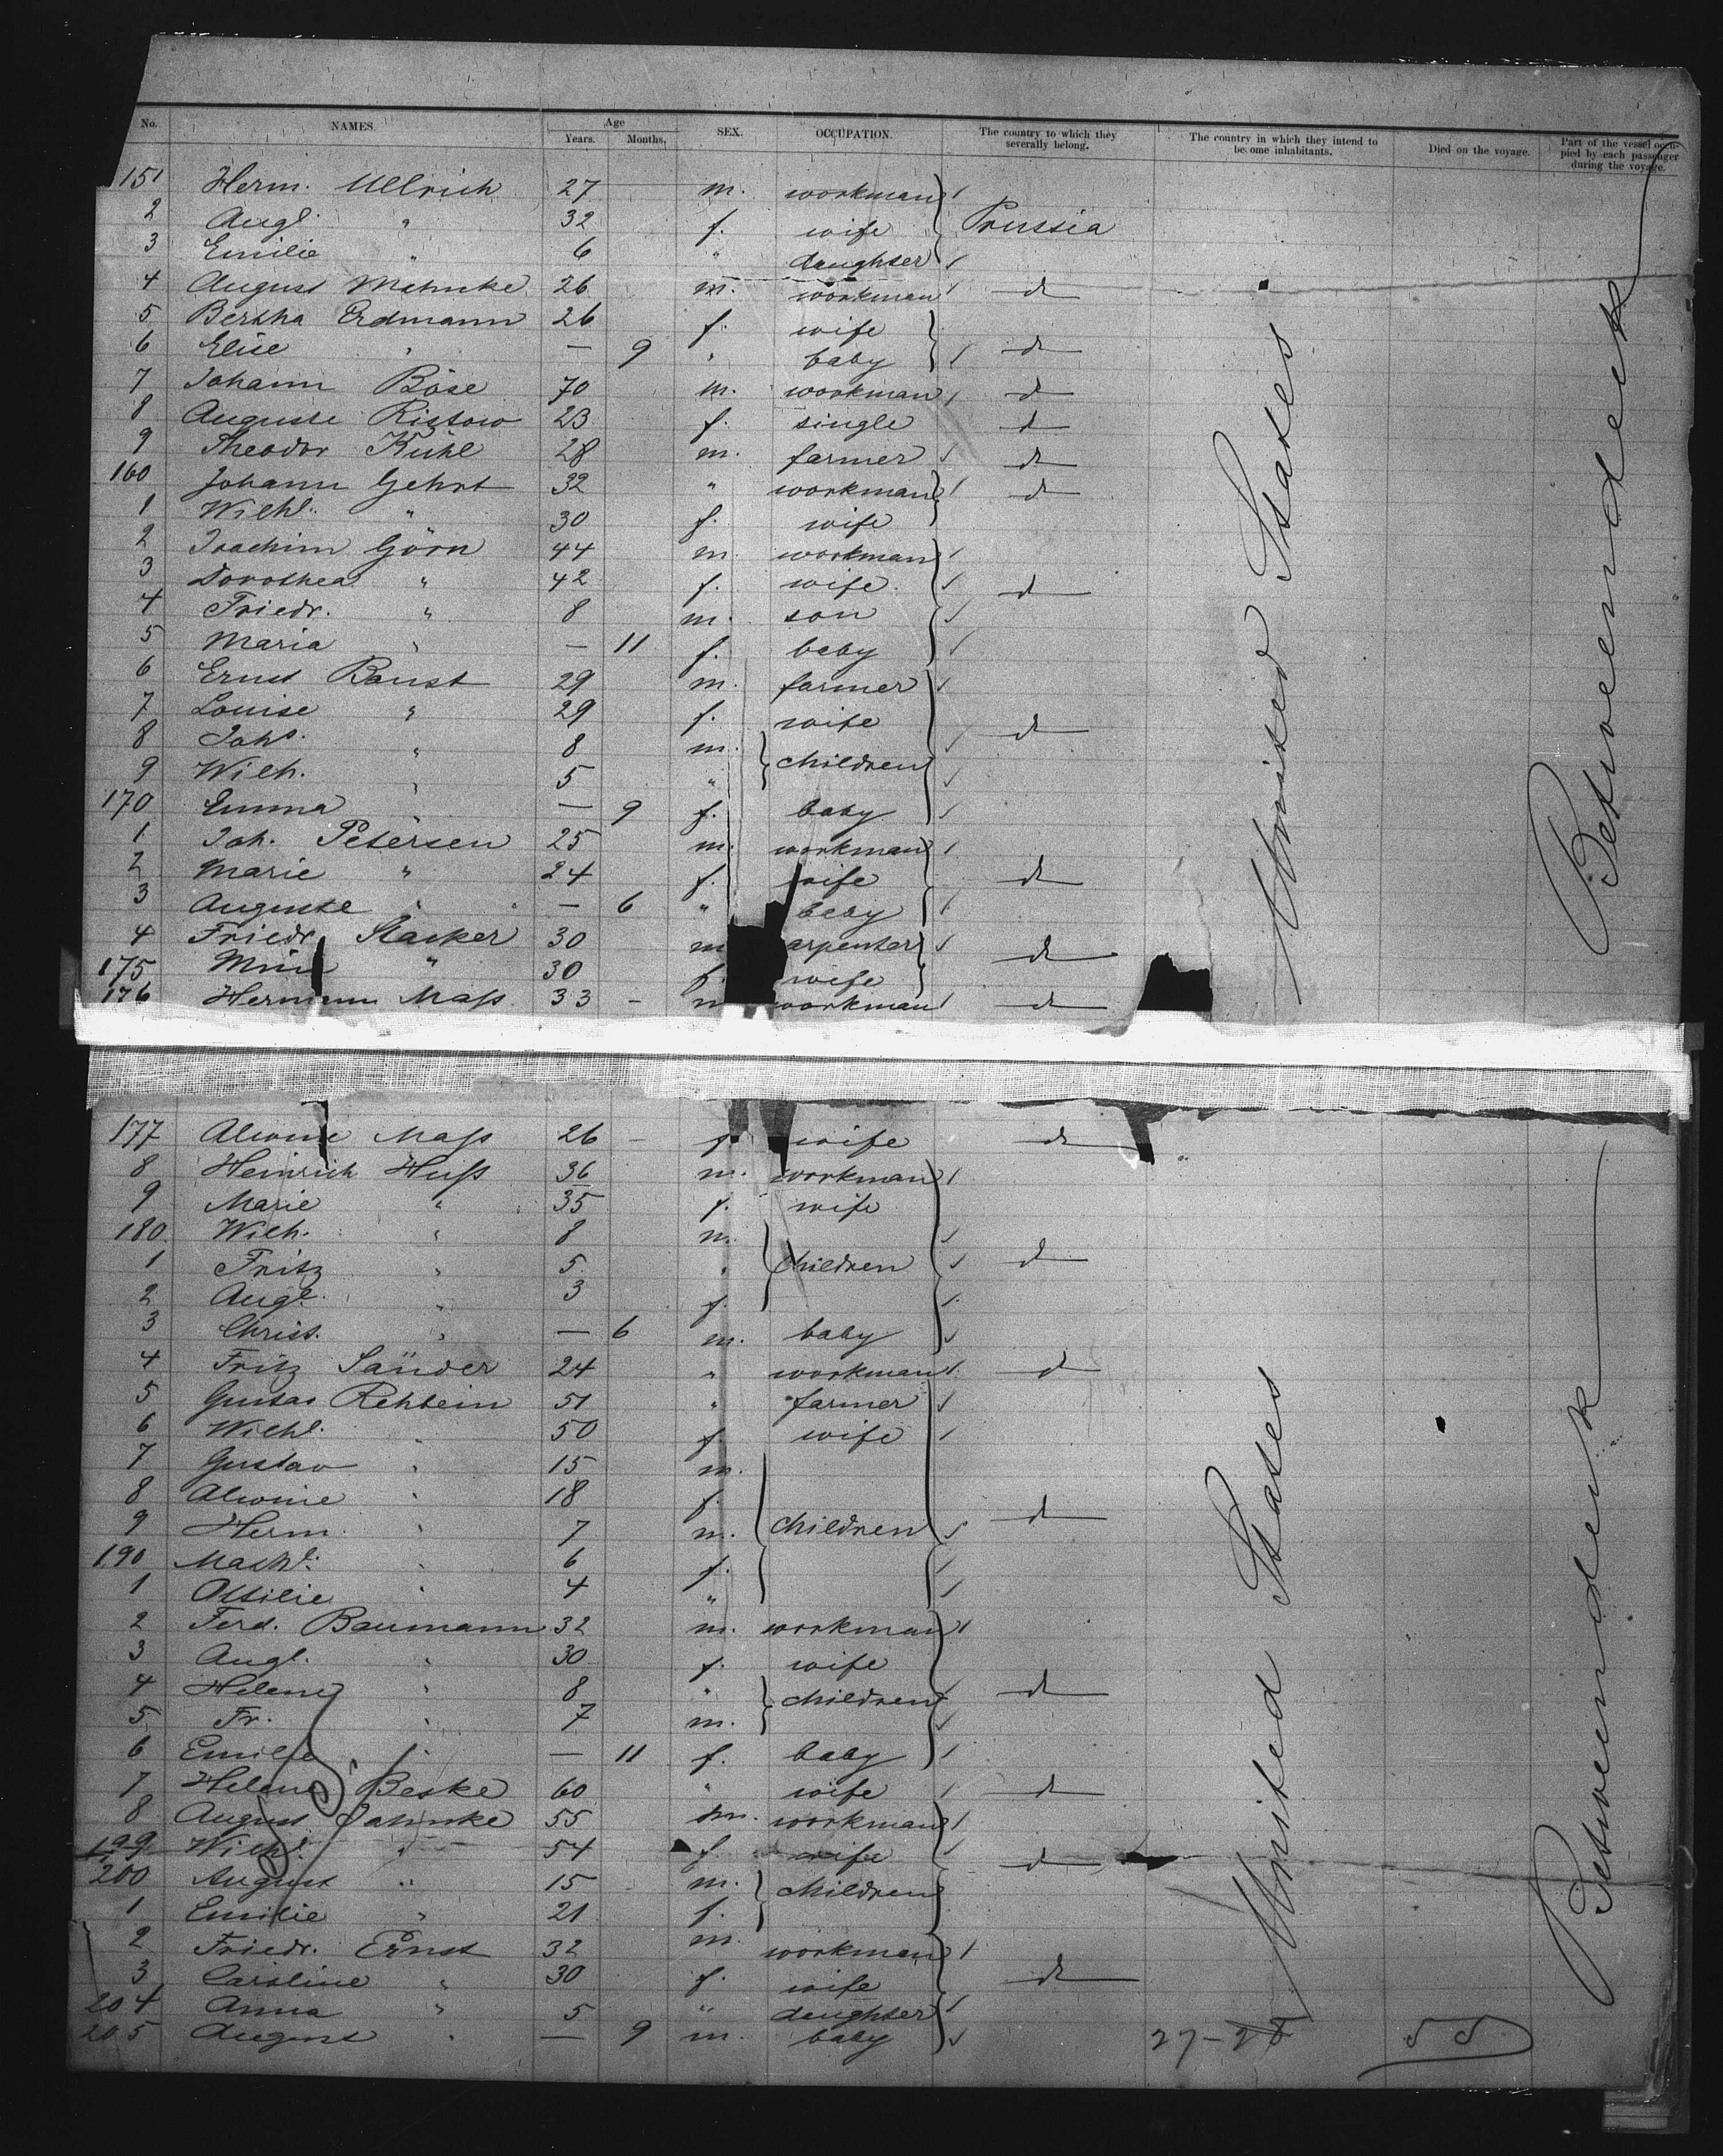 No. NAMES. Age Years. Months. SEX. OCCUPATION. The country to which they severally belong. The country in which they intend to become inhabitants. Died on the voyage. Part of the vessel occupied by each passenger during the voyage.
151 Herm. Ullrich 27 m. workman
2 Augl. " 32 f. wife Prussia
3 Emilie " 6 " daughter
4 August Mahnke 26 m. workman do
5 Bertha Erdmann 26 f. wife
6 Elise " — 9 " baby do
7 Johann Böse 70 m. workman do
8 Auguste Ristow 23 f. single do
9 Theodor Kühl 28 m. farmer do
160 Johann Gehrt 32 " workman do
1 Wilhl. " 30 f. wife
2 Joachim Görn 44 m. workman
3 Dorothea " 42 f. wife do
4 Friedr. " 8 m. son
5 Maria " — 11 f. baby
6 Ernst Banst 29 m. farmer
7 Louise " 29 f. wife do
8 Johs. " 8 m. children
9 Wilh. " 5 "
170 Emma — 9 f. baby
1 Joh. Petersen 25 m. workman
2 Marie " 24 f. wife do
3 Auguste " — 6 " baby
4 Friedr. Stacker 30 m arpenter do
175 " 30 f. wife
176 Hermann Maſs 33 - m workman do
United States
Between deck
177 Alwine Maſs 26 - f. wife do
8 Heinrich Huſs 36 m. workman
9 Marie " 35 f. wife
180 Wilh. " 8 m.
1 Fritz " 5 " children do
2 Augl. " 3 f.
3 Christ. " — 6 m. baby
4 Fritz Sänder 24 " workman do
5 Gustav Rehbein 51 " farmer
6 Wilhl. " 50 f. wife
7 Gustav " 15 m.
8 Alwine " 18 f. do
9 Herm. " 7 m. children
190 Mathl. " 6 f.
1 Ottilie " 4 "
2 Ferd. Baumann 32 m. workman
3 Augl. " 30 f. wife
4 Helene " 8 " children do
5 Fr. " 7 m.
6 Emilie " — 11 f. baby
7 Helene Beske 60 " wife do
8 August Jahnke 55 m. workman
199 Wilhl. " 54 f. wife do
200 August " 15 m. children
1 Emilie " 21 f.
2 Friedr. Ernst 32 m. workman
3 Caroline " 30 f. wife do
204 Anna " 5 " daughter
205 August " — 9 m. baby
United States
Between deck
27-28